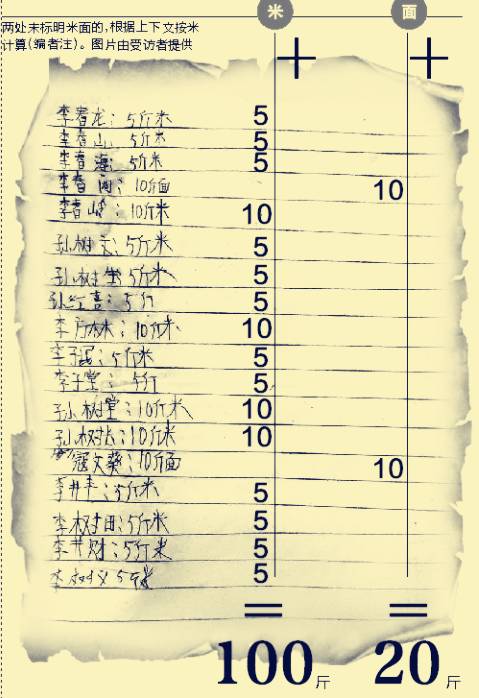 米 面
两处未标明米面的,根据上下文按米
计算(编者注)。图片由受访者提供
+ +
李春龙:5斤米 5
李春山:5斤米 5
李春海:5斤米 5
李春:10斤面 10
李春岐:10斤米 10
孙树文:5斤米 5
孙树生:5斤米 5
孙红喜:5斤 5
李万林:10斤米 10
李子:5斤米 5
李子堂:5斤 5
孙树堂:10斤米 10
孙树:10斤米 10
寇文葵:10斤面 10
李井丰:5斤米 5
李树田:5斤米 5
李井财:5斤米 5
李树义5斤米 5
= =
100斤 20斤